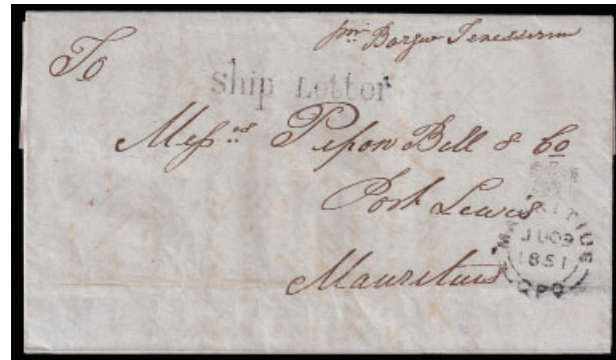 pr Barque Tenesserim
To
Ship Letter
Messrs Pipon Bell & Co
Port Lewis
Mauritius
MAURITIUS
JU 09
1851
GPO